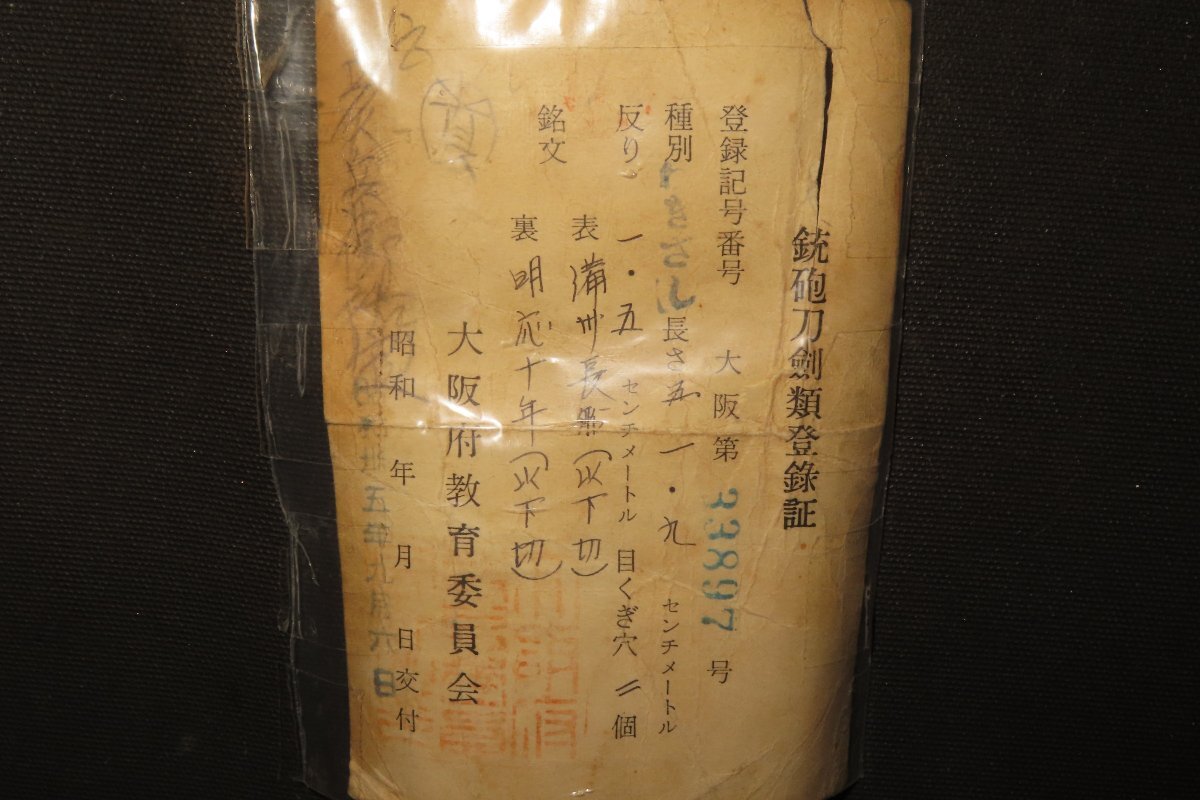 銃砲刀劍類登録証
登録記号番号 大阪第 33897 号
種別 わきざし 長さ 五一・九 センチメートル
反り 一・五 センチメートル 目くぎ穴 二 個
銘文 表 備州長船(以下切)
裏 明応十年(以下切)
大阪府教育委員会
昭和 年 月 日交付
五年九月六日